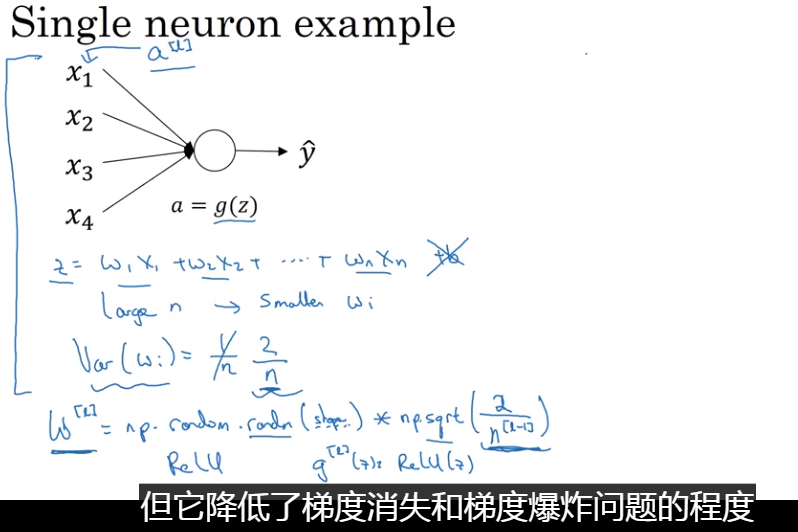 Single neuron example
a^[l]
x₁
x₂
x₃
x₄
ŷ
a = g(z)
z = w₁x₁ + w₂x₂ + ···· + wₙxₙ +b
Large n → Smaller wᵢ
Var(wᵢ) = 1/n 2/n
W^[l] = np.random.randn(shape) * np.sqrt(2/n^[l-1])
ReLU g^[l](z) = ReLU(z)
但它降低了梯度消失和梯度爆炸问题的程度